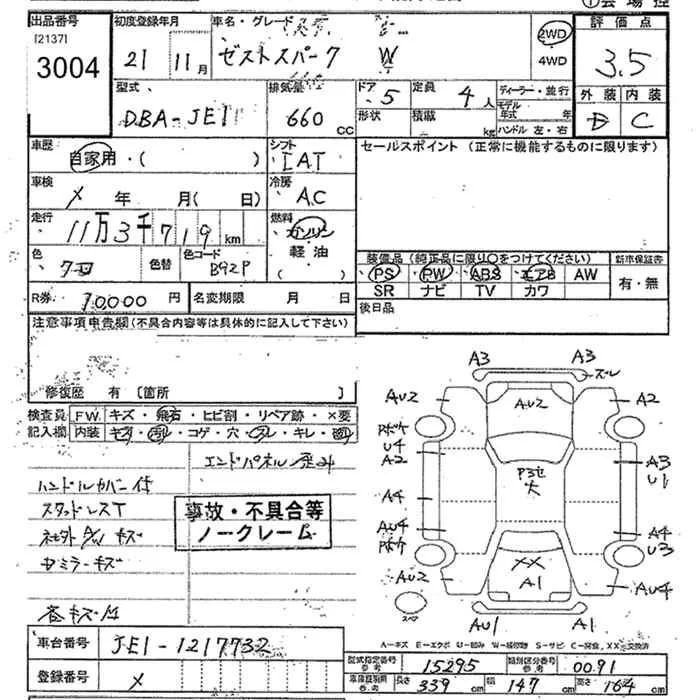 ①会場控
出品番号
[2137]
3004
初度登録年月
21 11月
車名・グレード
ゼストスパーク W
2WD
4WD
評価点
3.5
外装 内装
D C
型式
DBA-JE1
排気量
660 cc
ドア
5
形状
定員
4人
積載
kg
ディーラー・並行
モデル
年式 年
ハンドル 左・右
車歴
自家用・( )
シフト
IAT
セールスポイント (正常に機能するものに限ります)
車検
メ 年 月( 日)
冷房
AC
走行
11万3千719km
燃料
ガソリン
軽油
( )
色
クロ
色替
色コード
B92P
装備品(純正品に限り○をつけてください) 新車保証書
PS・PW・ABS・エアB・AW
SR ナビ TV カワ
有・無
R券
10000円
名変期限 月 日
後日品
注意事項申告欄(不具合内容等は具体的に記入して下さい)
修復歴 有〔箇所 〕
検査員
記入欄
FW. キズ・飛石・ヒビ割・リペア跡・×要
内装
コゲ・穴
キレ
エンドパネル歪み
ハンドルカバー付
スタッドレスT
社外A/W キズ
キズ
事故・不具合等
ノークレーム
A3 A3
ズレ
AU2 AU2 A2
U4
A2
P3セ
大
A3
U1
A4
AU4 A4
U3
AU2 XX
A1
AU4
スペア
AU1 A1
A－キズ E－エクボ U－凹み W－補修跡 S－サビ C－腐食, XX－交換済
車台番号
JE1-1217732
登録番号
メ
型式指定番号
参考
15295
類別区分番号
参考
0091
車庫証明用
参考
長さ 339cm 幅 147cm 高さ 164cm